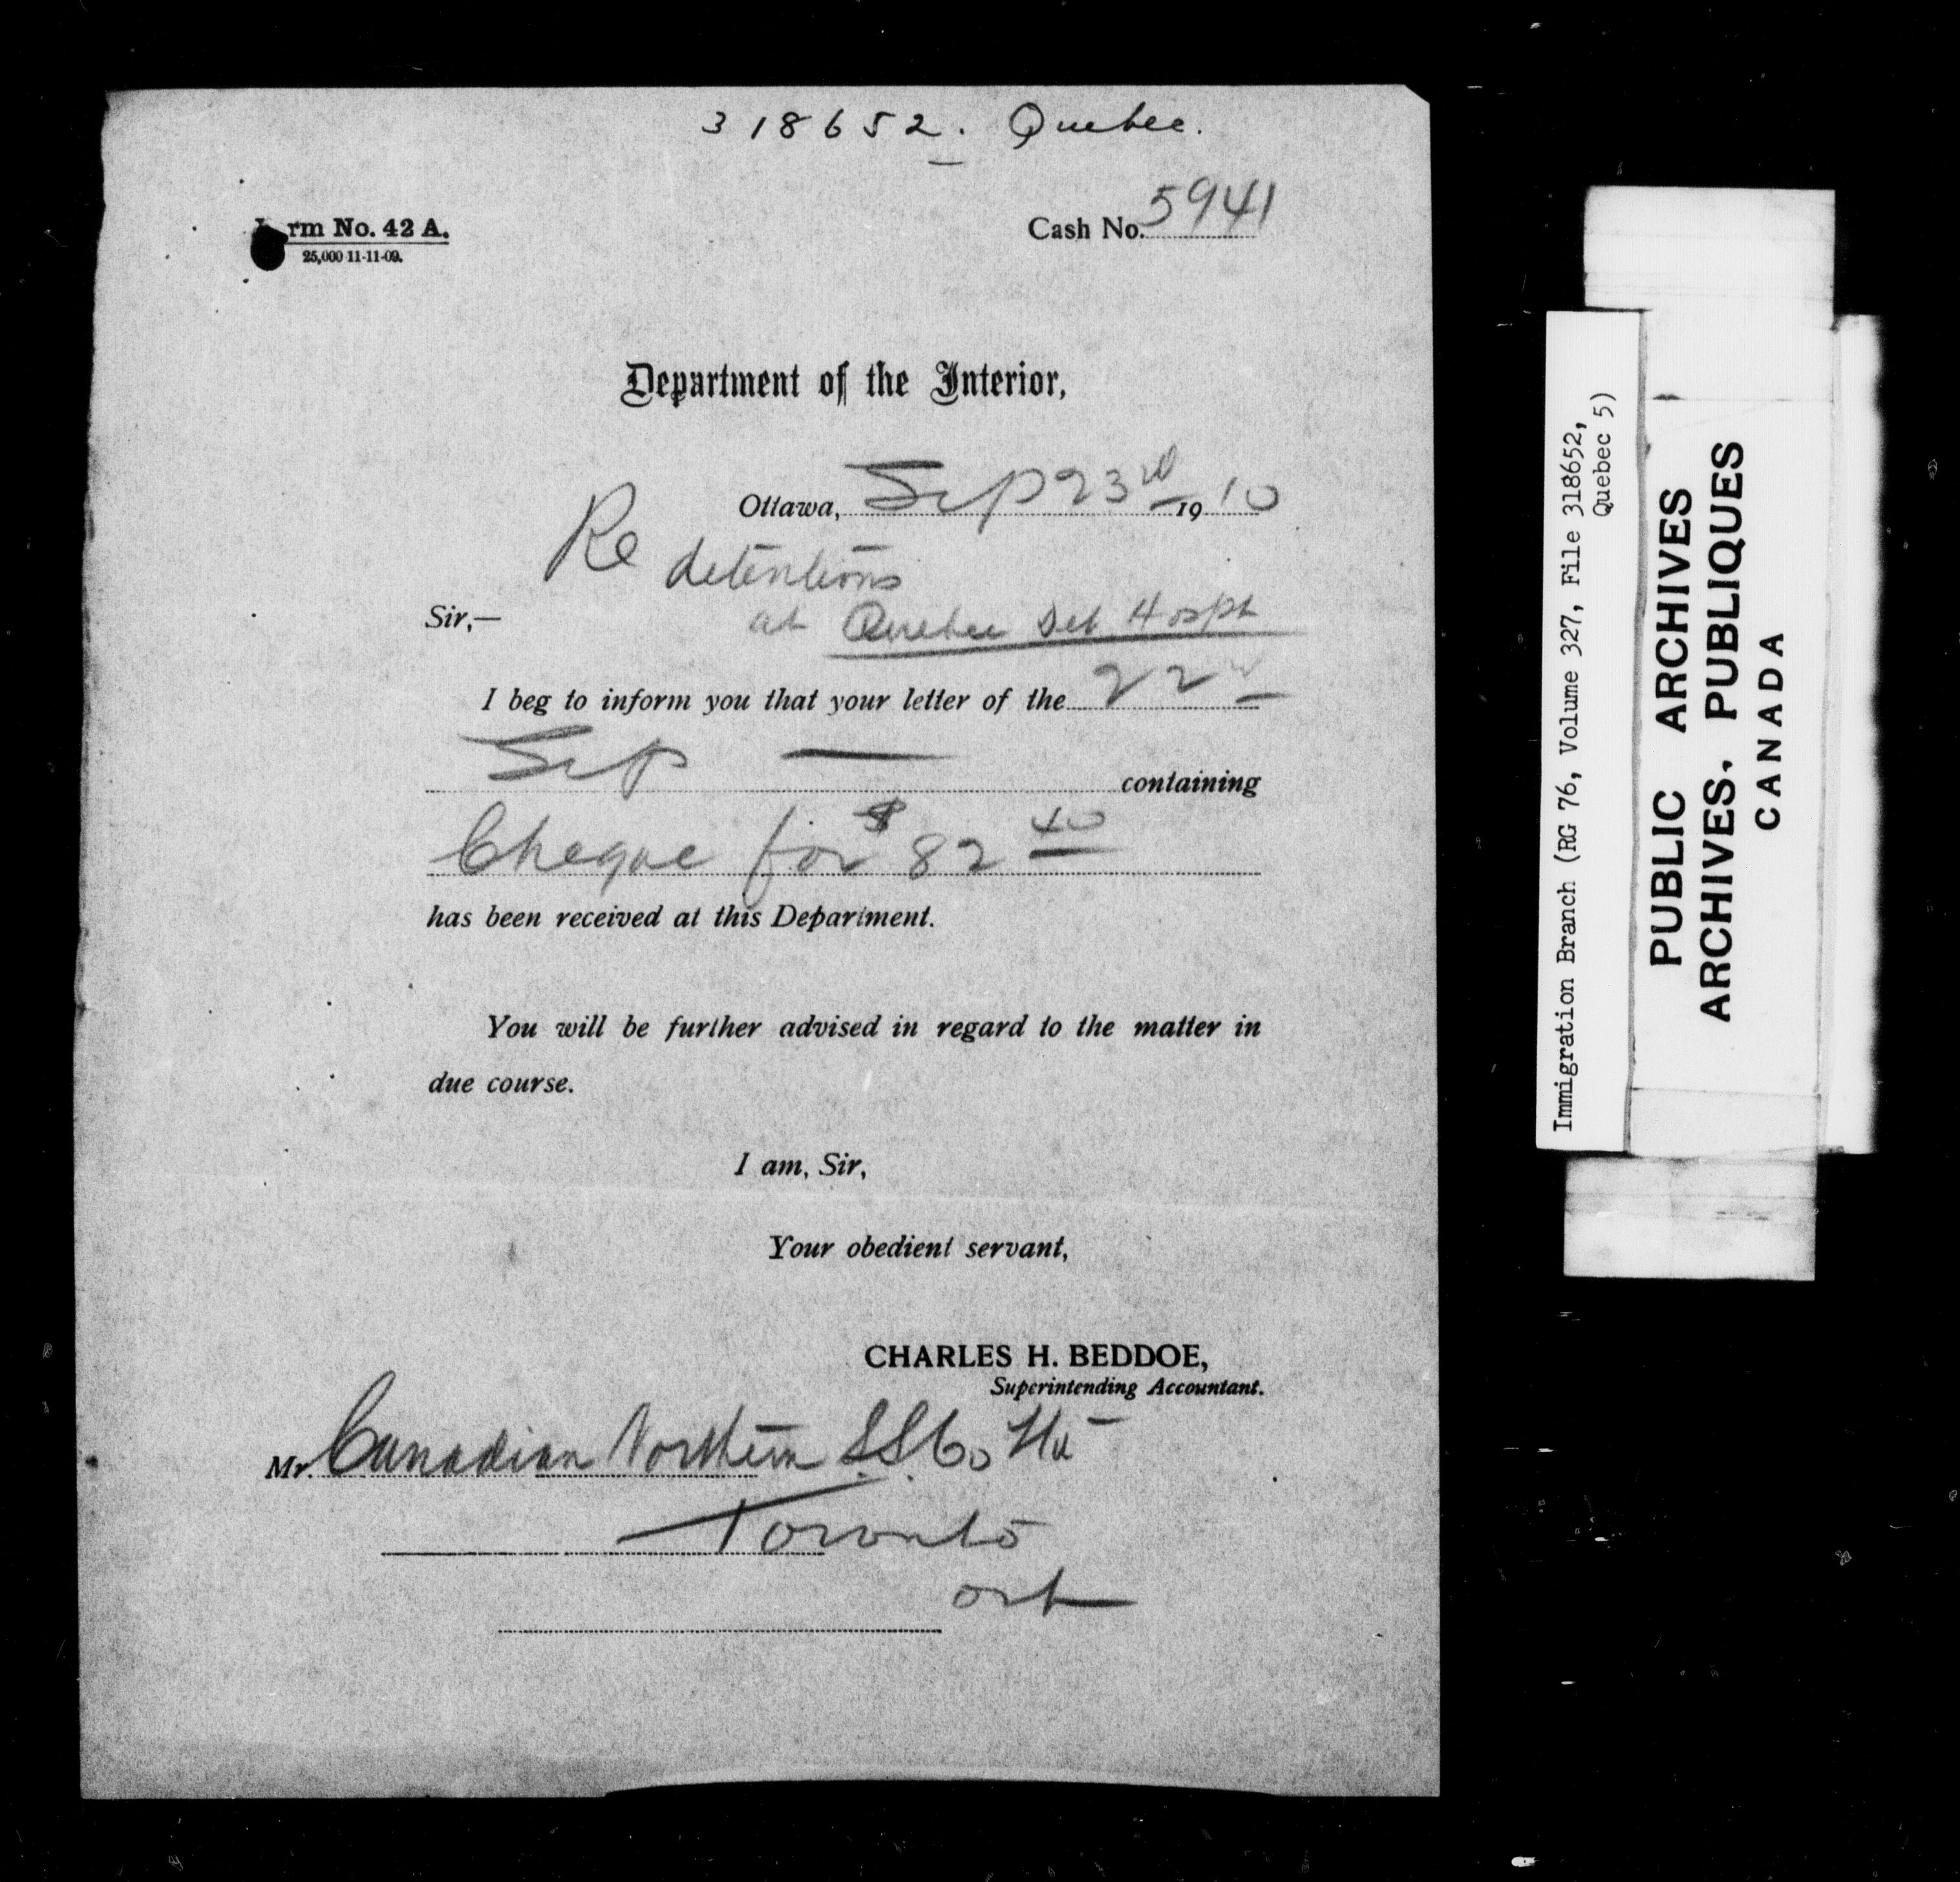 318652. Quebec.
Cash No. 5941
rm No. 42 A.
25,000 11-11-09.
Department of the Interior,
Ottawa, Sep 23rd 1910
Re detentions
at Quebec Det Hospt
Sir,—
I beg to inform you that your letter of the 22nd
Sep — containing
Cheque for $82 40
has been received at this Department.
You will be further advised in regard to the matter in
due course.
I am, Sir,
Your obedient servant,
CHARLES H. BEDDOE,
Superintending Accountant.
Mr. Canadian Northern S.S. Co
Toronto
Ont
Immigration Branch (RG 76, Volume 327, File 318652,
Quebec 5)
PUBLIC ARCHIVES
ARCHIVES. PUBLIQUES
CANADA